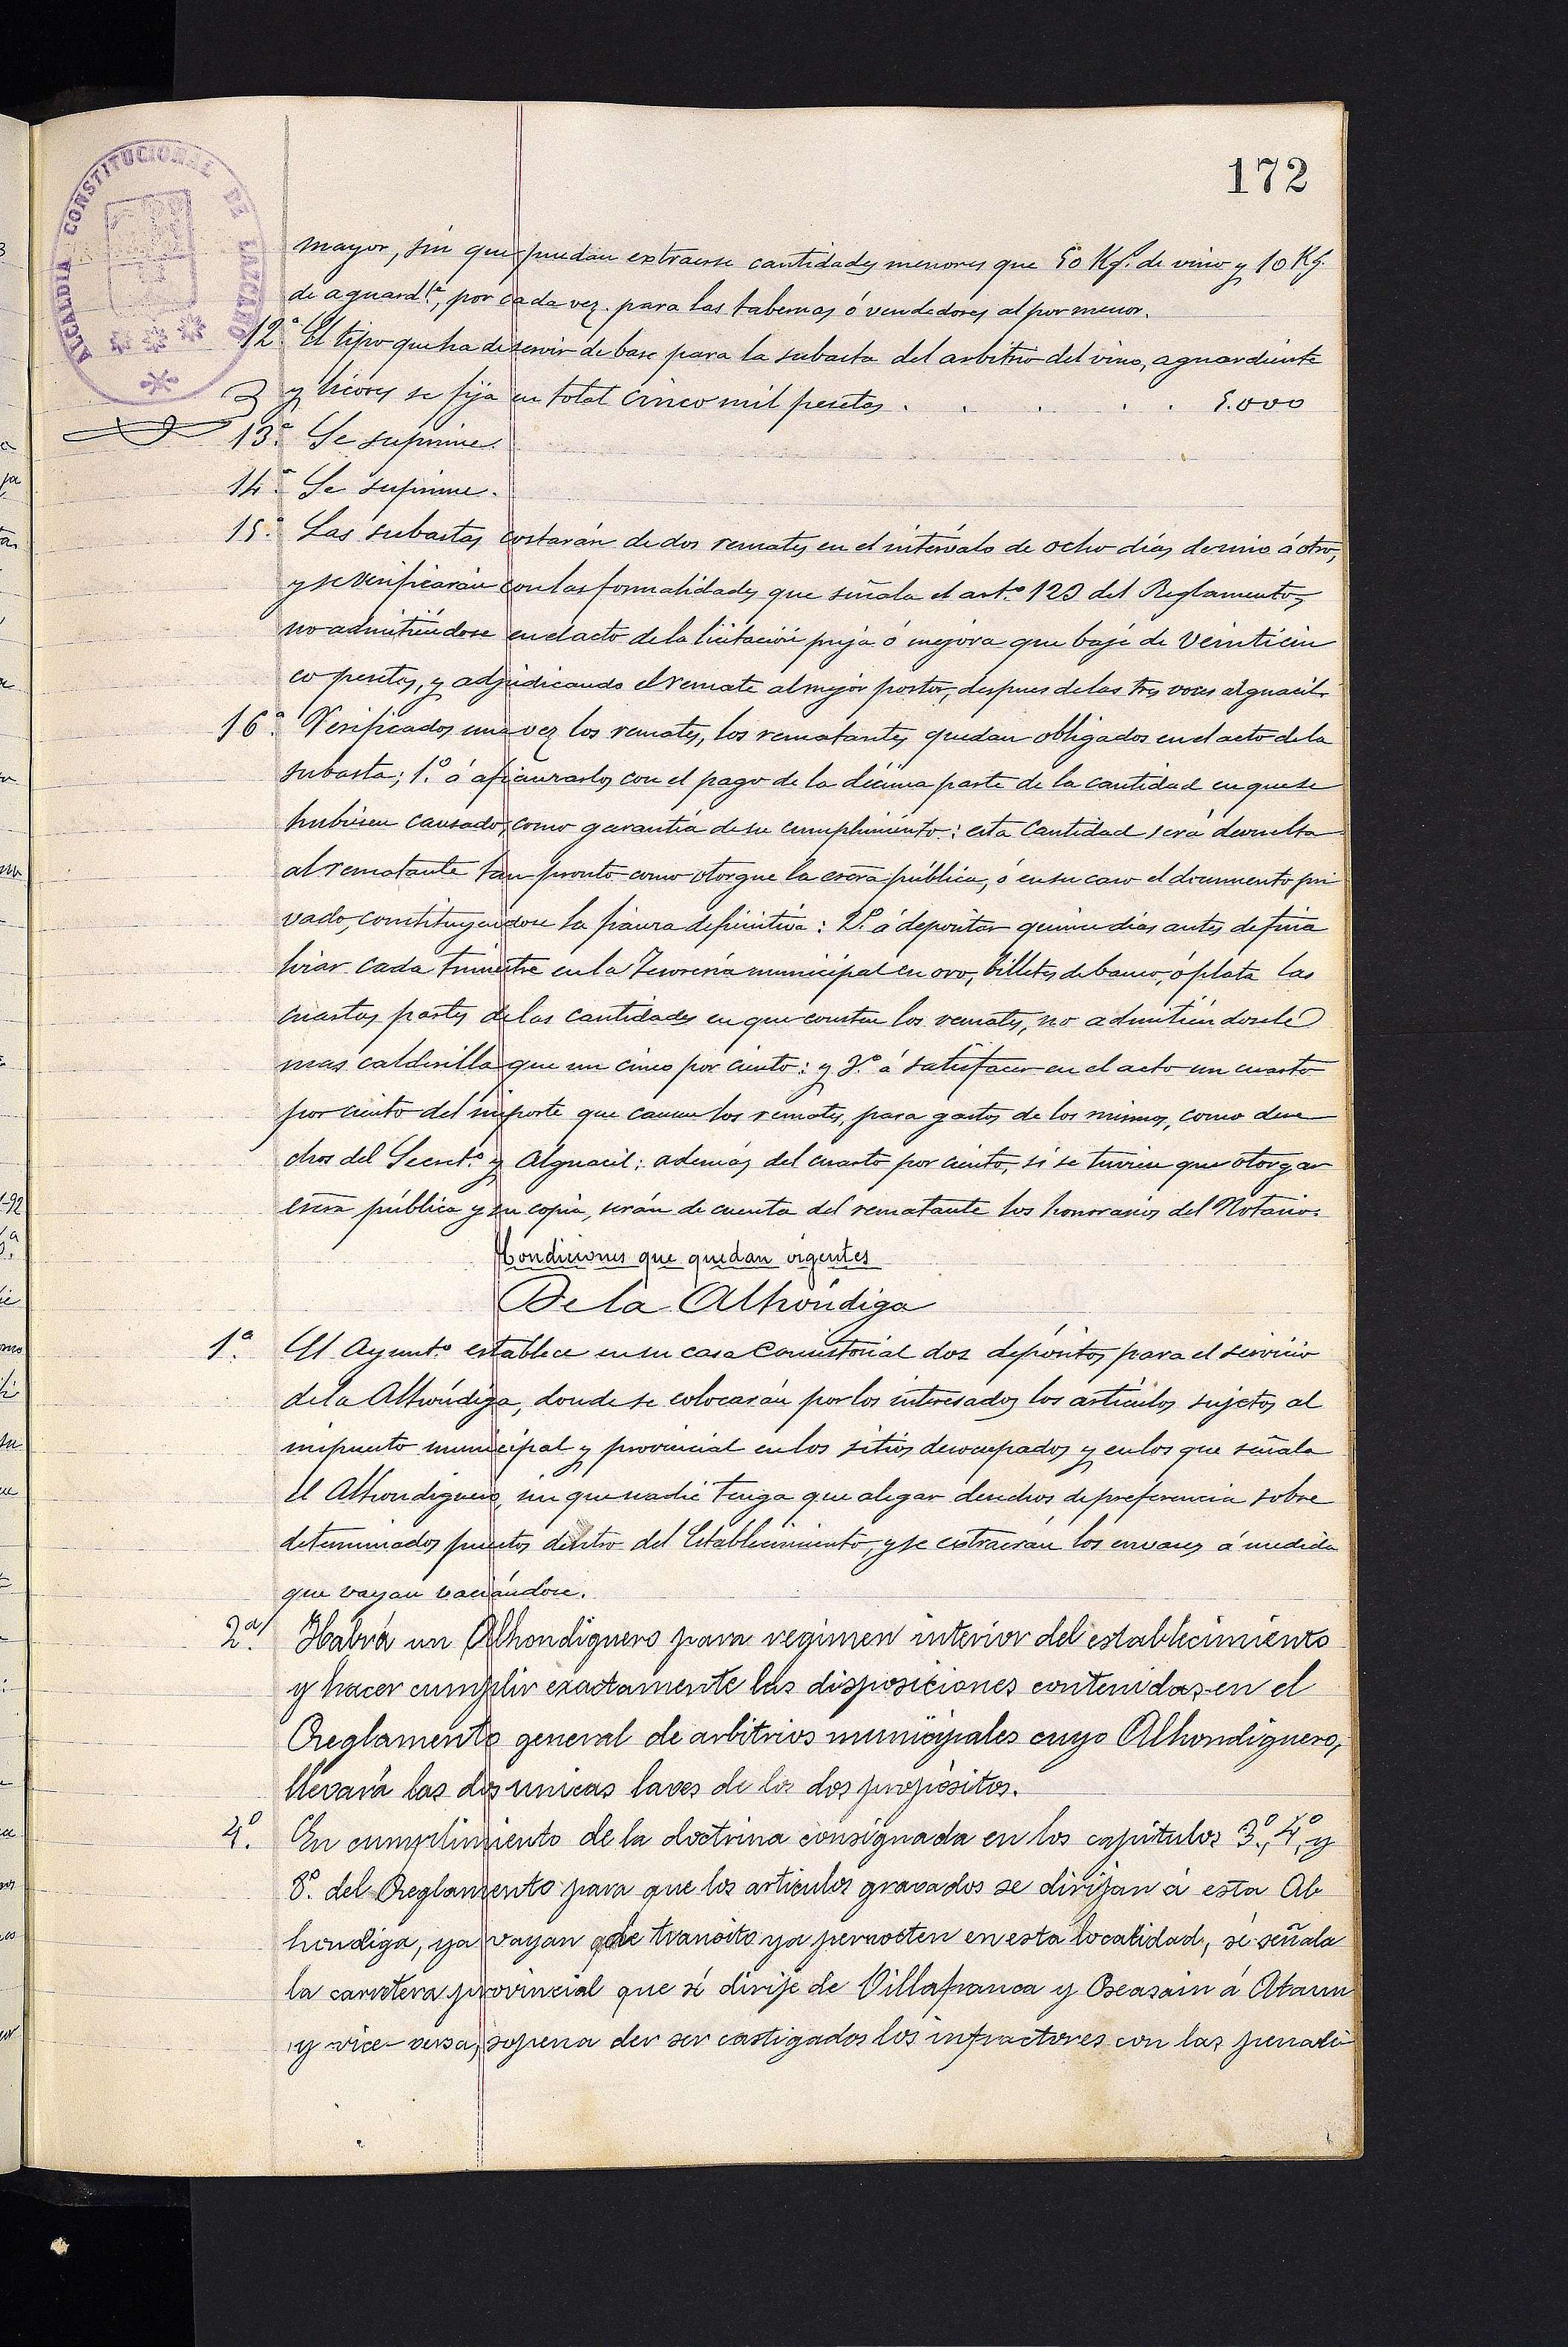 172
ALCALDIA CONSTITUCIONAL DE LAZCANO
mayor, sin que puedan extraerse cantidades menores que 50 Kgs. de vino y 10 Kg.
de aguard.te, por cada vez. para las tabernas ó vendedores al por menor.
12.ª El tipo que ha de servir de base para la subasta del arbitrio del vino, aguardiente
y licores se fija en total cinco mil pesetas . . . . . 5.000
13.ª Se suprime.
14.ª Se suprime.
15.ª Las subastas costarán de dos remates en el intérvalo de ocho días de uno á otro,
y se verificarán con las formalidades que señala el art.º 123 del Reglamento,
no admitiéndose en el acto de la licitación puja ó mejora que baje de veinticin
co pesetas, y adjudicando el remate al mejor postor, despues de las tres voces alguacil.
16.ª Verificados una vez los remates, los rematantes quedan obligados en el acto de la
subasta; 1.º á afianzarlos con el pago de la décima parte de la cantidad en que se
hubiesen causado, como garantía de su cumplimiento: esta cantidad será devuelta
al rematante tan pronto como otorgue la escra pública, ó en su caso el documento pri
vado, constituyendose la fianza definitiva: 2.º á depositar quince días antes de fina
lizar cada trimestre en la Tesorería municipal en oro, billetes de banco, ó plata las
cuartas partes de las cantidades en que consten los remates, no admitiéndosele
mas calderilla que un cinco por ciento: y 3.º á satisfacer en el acto un cuarto
por ciento del importe que causen los remates, para gastos de los mismos, como dere
chos del Secret.º y Alguacil; además del cuarto por ciento, si se tuviese que otorgar
escra pública y su copia, serán de cuenta del rematante los honorarios del Notario.
Condiciones que quedan vigentes
De la Alhóndiga
1.ª El Ayunt.º establece en su casa Consistorial dos depósitos para el servicio
de la Alhóndiga, donde se colocarán por los interesados los artículos sujetos al
impuesto municipal y provincial en los sitios desocupados y en los que señala
el Alhondiguero, sin que nadie tenga que alegar derechos de preferencia sobre
determinados puestos dentro del Establecimiento, y se extraerán los envases á medida
que vayan vaciándose.
2.ª Habrá un Alhondiguero para regimen interior del establecimiento
y hacer cumplir exactamente las disposiciones contenidas en el
Reglamento general de arbitrios municipales cuyo Alhondiguero,
llevará las dos unicas laves de los dos propósitos.
4.º En cumplimiento de la doctrina consignada en los capitulos 3.º, 4.º, y
8.º del Reglamento para que los articulos gravados se dirijan á esta Al
hondiga, ya vayan de transito ya pernocten en esta localidad, se señala
la carretera provincial que sé dirije de Villafranca y Beasain á Ataun
y vice-versa, sopena der ser castigados los infractores con las penali